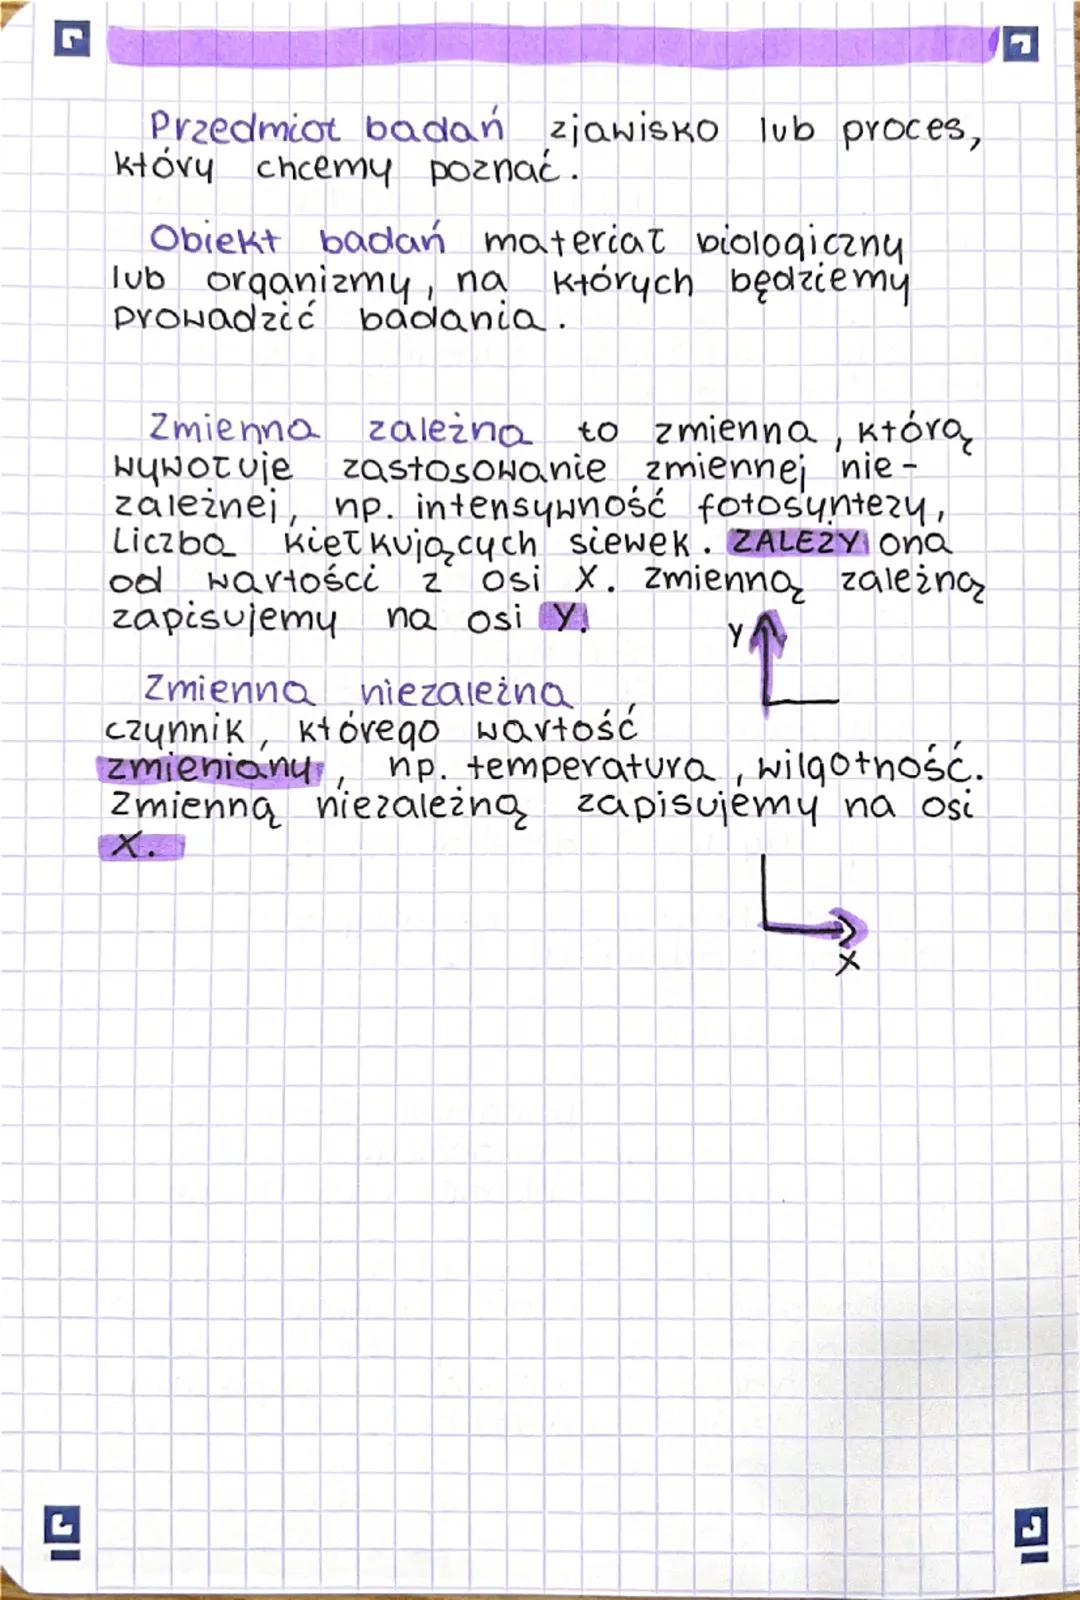 Przedmiot badań zjawisko lub proces,
który chcemy poznać.
Obiekt badań materiał biologiczny
lub organizmy, na których będziemy
prowadzić badania.
Zmienna zależna to zmienna, którą
wywołuje zastosowanie zmiennej nie-
zależnej, np. intensywność fotosyntezy,
liczba kiełkujących siewek. ZALEŻY ona
od wartości z osi X. Zmienną zależną
zapisujemy na osi Y.
Y
Zmienna niezależna
czynnik, którego wartość
zmieniany, np. temperatura, wilgotność.
Zmienną niezależną zapisujemy na osi
X.
X